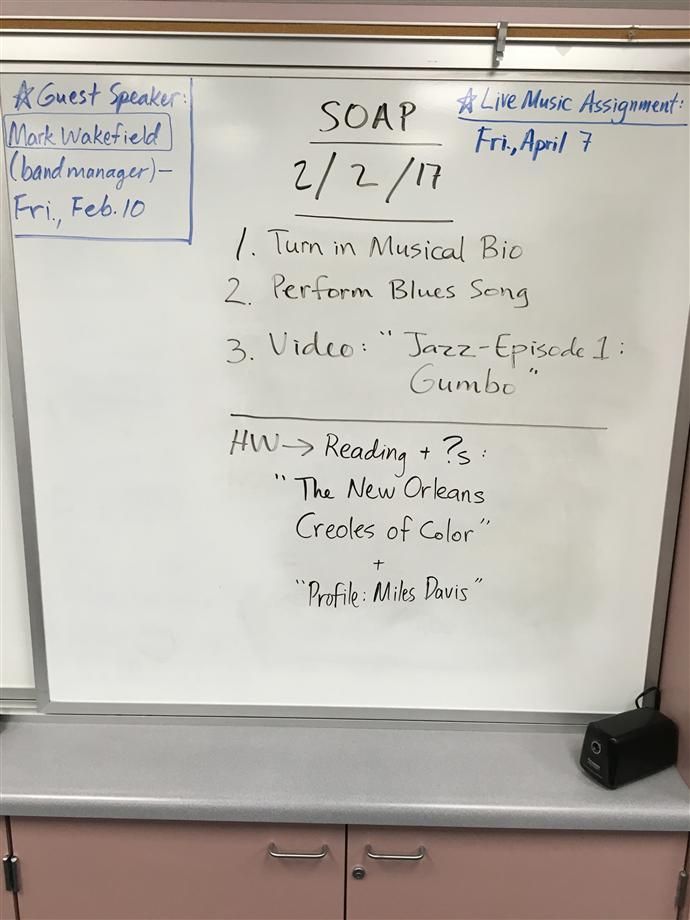 ☆ Guest Speaker:
Mark Wakefield
(band manager)–
Fri., Feb. 10
SOAP
2/2/17
☆ Live Music Assignment:
Fri., April 7
1. Turn in Musical Bio
2. Perform Blues Song
3. Video: "Jazz-Episode 1:
Gumbo"
HW→ Reading + ?s:
"The New Orleans
Creoles of Color"
+
"Profile: Miles Davis"